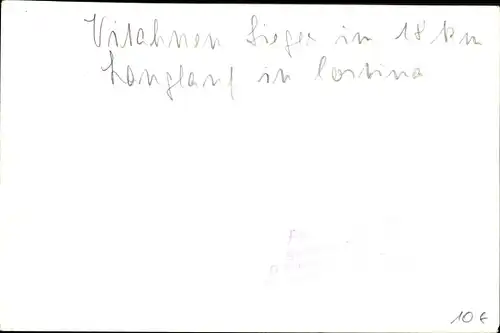 Vitahnen Sieger in 18 km
Langlauf in Cortina
10 €